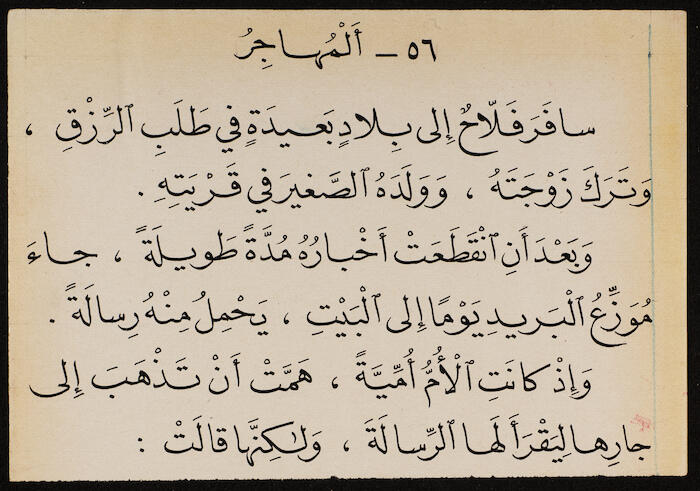 ٥٦ – أَلْمُهاجِرُ
سافَرَ فَلّاحٌ إلى بِلادٍ بَعيدَةٍ في طَلَبِ ٱلرِّزْقِ ،
وَتَرَكَ زَوْجَتَهُ ، وَوَلَدَهُ ٱلصَّغيرَ في قَرْيَتِهِ .
وَبَعْدَ أَنِ ٱنْقَطَعَتْ أَخْبارُهُ مُدَّةً طَويلَةً ، جاءَ
مُوَزِّعُ ٱلْبَريدِ يَوْمًا إلى ٱلْبَيْتِ ، يَحْمِلُ مِنْهُ رِسالَةً .
وَإِذْ كانَتِ ٱلْأُمُّ أُمِّيَّةً ، هَمَّتْ أَنْ تَذْهَبَ إلى
جارِها لِيَقْرَأَ لَها ٱلرِّسالَةَ ، وَلٰكِنَّها قالَتْ :